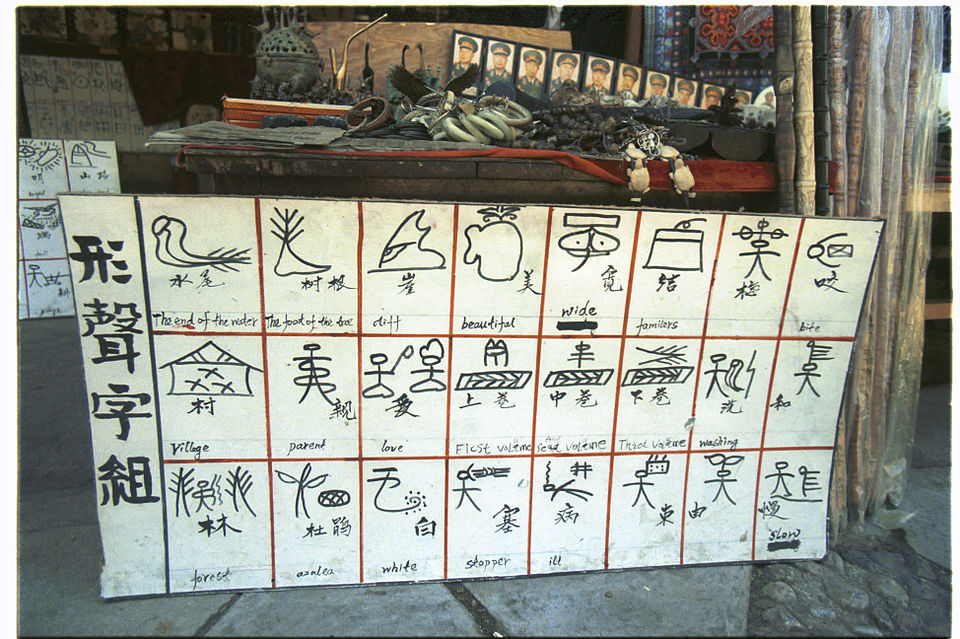 形聲字組
水尾
The end of the water
树根
The foot of the tree
崖
cliff
美
beautiful
宽
wide
结
familers
咬
bite
村
village
親
parent
爱
love
上卷
First volume
中卷
Second volume
下卷
Third volume
洗
washing
和
林
forest
杜鹃
azalea
白
white
塞
stopper
病
ill
东
由
慢
slow
明
山路